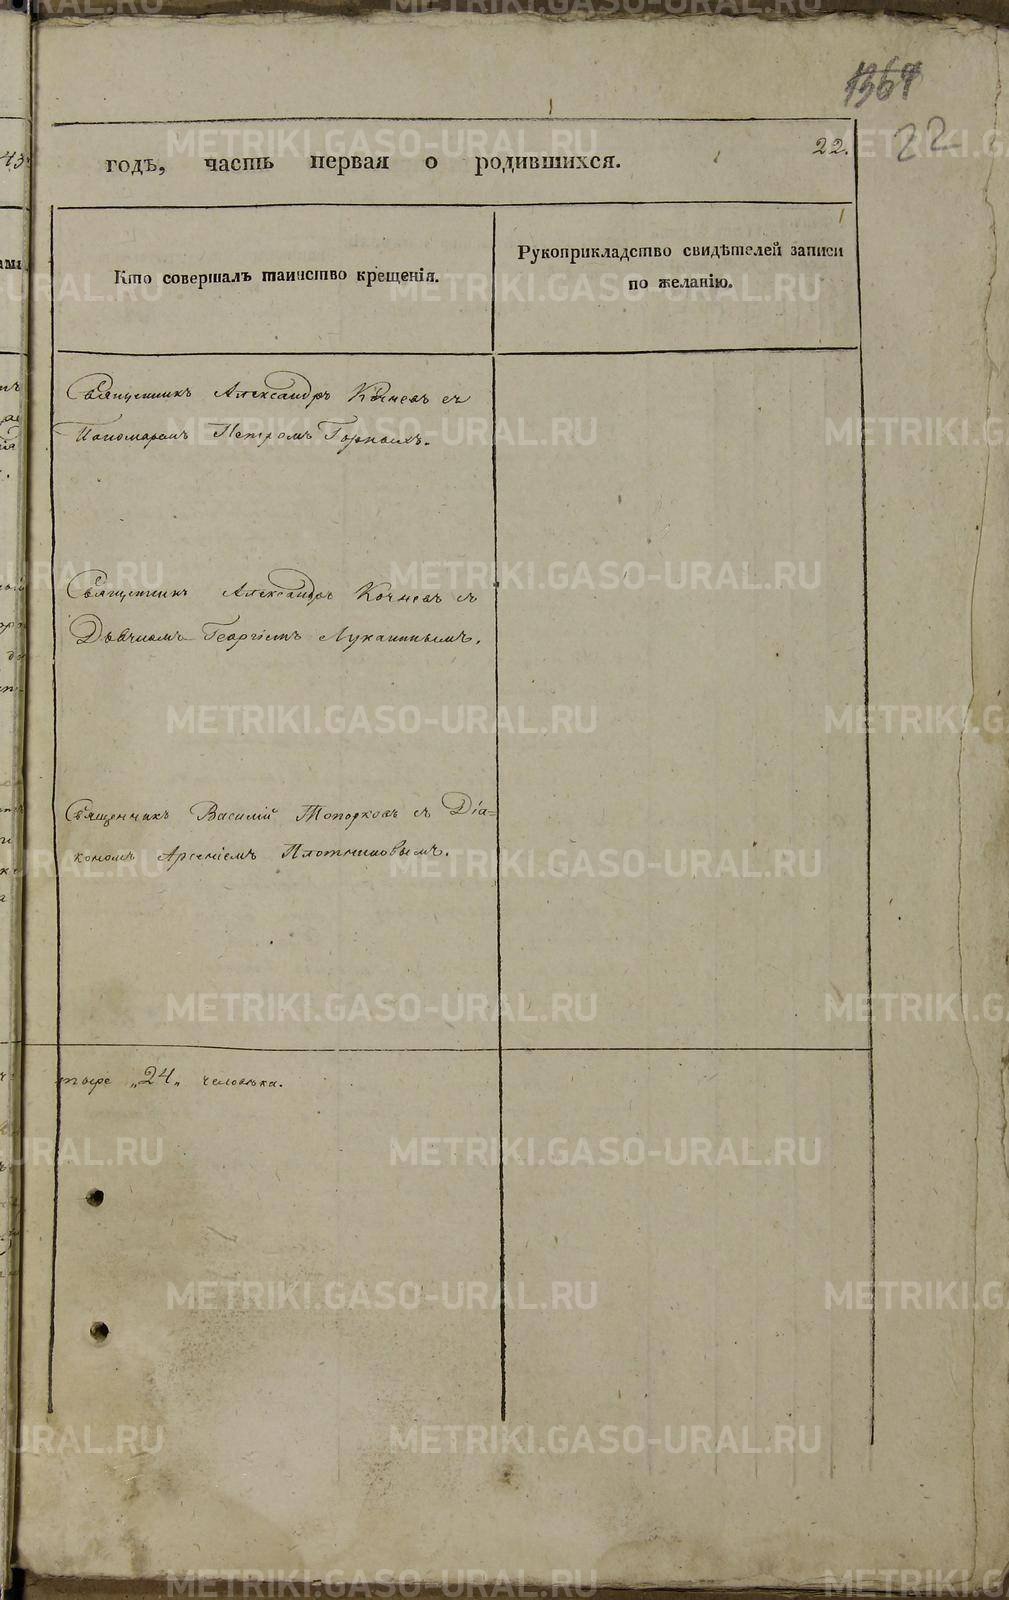 1364
22
22.
годѣ, часть первая о родившихся.
Кто совершалъ таинство крещенія.
Рукоприкладство свидѣтелей записи
по желанію.
Священникъ Александръ Кочневъ съ
Пономаремъ Петромъ Горныхъ.
Священникъ Александръ Кочневъ съ
Дьячкомъ Георгіемъ Луканинымъ.
Священникъ Василій Топорковъ съ Діа-
кономъ Арсеніемъ Плотниковымъ.
тыре „24„ человѣка.
METRIKI.GASO-URAL.RU